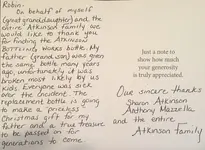 Robin.
On behalf of myself
(great granddaughter) and the
entire Atkinson family are
would like to thank you
for finding the ATKINSON
BOTTLING works bottle. My
father (grandson) was given
the same bottle many years
ago, unfortunately it was
broken most likely by us
kids. Everyone was sick
over the incident. The
replacement bottle is going
to make a priceless
Christmas gift for my
father and a true treasure
to be passed on for
generations to come
Just a note to
show how much
your generosity
is truly appreciated.
Our sincere thanks
Sharon Atkinson
Anthony Mazzella
and the entire
Atkinson Family